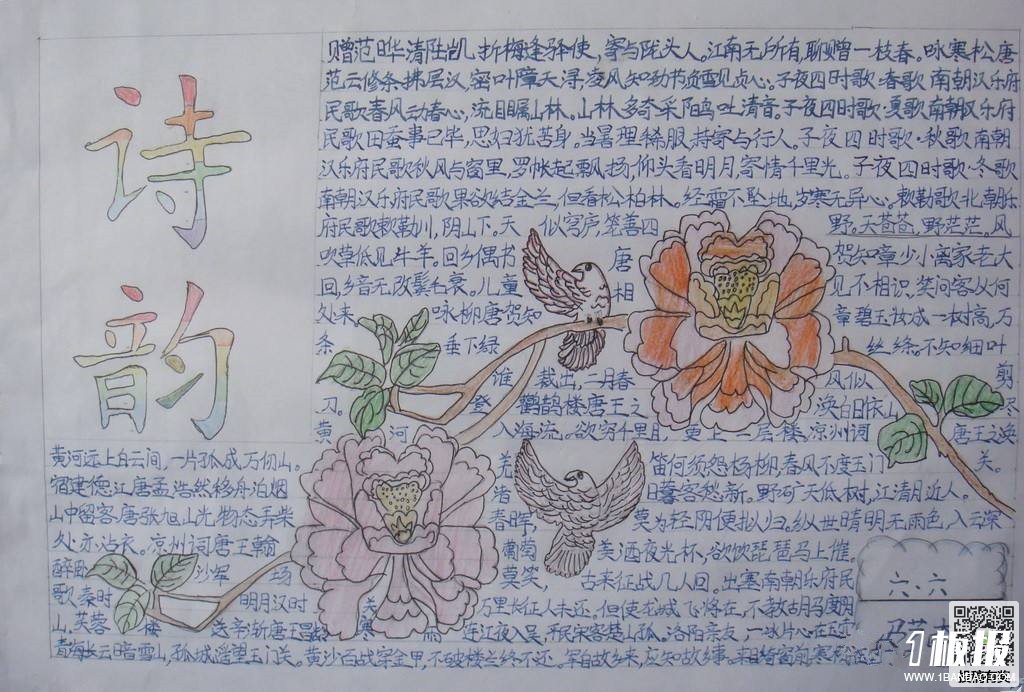 诗韵
赠范晔清陆凯折梅逢驿使,寄与陇头人。江南无所有,聊赠一枝春。咏寒松唐
范云修条拂层汉,密叶障天浔,凌风知劲节,负雪见贞心。子夜四时歌·春歌南朝汉乐府
民歌春风动春心,流目瞩山林。山林多奇采,阳鸟吐清音。子夜四时歌·夏歌南朝汉乐府
民歌田蚕事已毕,思妇犹苦身。当暑理絺服,持寄与行人。子夜四时歌·秋歌南朝
汉乐府民歌秋风与窗里,罗帐起飘扬,仰头看明月,寄情千里光。子夜四时歌·冬歌
南朝汉乐府民歌果欲结金兰,但看松柏林。经霜不坠地,岁寒无异心。敕勒歌北朝乐
府民歌敕勒川,阴山下。天似穹庐,笼盖四野。天苍苍,野茫茫。风
吹草低见牛羊。回乡偶书唐贺知章少小离家老大
回,乡音无改鬓毛衰。儿童相见不相识,笑问客从何
处来。咏柳唐贺知章碧玉妆成一树高,万
条垂下绿丝绦。不知细叶
谁裁出,二月春风似剪
刀。登鹳鹊楼唐王之涣白日依山尽
黄河入海流。欲穷千里目,更上一层楼。凉州词唐王之涣
黄河远上白云间,一片孤城万仞山。羌笛何须怨杨柳,春风不度玉门关。
宿建德江唐孟浩然移舟泊烟渚日暮客愁新。野旷天低树,江清月近人。
山中留客唐张旭山光物态弄春晖,莫为轻阴便拟归。纵世晴明无雨色,入云深
处亦沾衣。凉州词唐王翰葡萄美酒夜光杯,欲饮琵琶马上催。
醉卧沙场莫笑,古来征战几人回。出塞南朝乐府民
歌秦时明月汉时关万里长征人未还。但使龙城飞将在,不教胡马度阴
山,芙蓉楼送辛渐唐王昌龄寒雨连江夜入吴,平明客楚山孤。洛阳亲友,一片冰心在玉壶
青海长云暗雪山,孤城遥望玉门关。黄沙百战穿金甲,不破楼兰终不还。君自故乡来,应知故乡事。来日绮窗前,寒梅
六.六
1板报
WWW.1BANBAO.COM